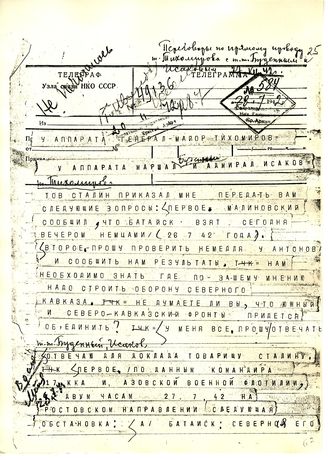 Переговоры по прямому проводу 25
т. Тихомирова с т.т. Буденным и
Исаковым
ТЕЛЕГРАФ
Узла связи НКО СССР
ТЕЛЕГРАММА
Не
584
У АППАРАТА ГЕНЕРАЛ-МАЙОР ТИХОМИРОВ
У АППАРАТА МАРШАЛ И АДМИРАЛ ИСАКОВ
т. Тихомиров
ТОВ СТАЛИН ПРИКАЗАЛ МНЕ ПЕРЕДАТЬ ВАМ
СЛЕДУЮЩИЕ ВОПРОСЫ: ПЕРВОЕ. МАЛИНОВСКИЙ
СООБЩИЛ, ЧТО БАТАЙСК ВЗЯТ СЕГОДНЯ
ВЕЧЕРОМ НЕМЦАМИ (26 7 42 ГОДА).
ВТОРОЕ. ПРОШУ ПРОВЕРИТЬ НЕМЕДЛЯ У АНТОНОВА
И СООБЩИТЬ НАМ РЕЗУЛЬТАТЫ. ТЧК НАМ
НЕОБХОДИМО ЗНАТЬ ГДЕ ПО-ВАШЕМУ МНЕНИЮ
НАДО СТРОИТЬ ОБОРОНУ СЕВЕРНОГО
КАВКАЗА. ТЧК НЕ ДУМАЕТЕ ЛИ ВЫ, ЧТО ЮЖНЫЙ
И СЕВЕРО-КАВКАЗСКИЙ ФРОНТЫ ПРИДЕТСЯ
ОБЪЕДИНИТЬ? ТЧК У МЕНЯ ВСЕ. ПРОШУ ОТВЕЧАТЬ
т.т. Буденный, Исаков
ОТВЕЧАЮ ДЛЯ ДОКЛАДА ТОВАРИЩУ СТАЛИНУ.
ТЧК ПЕРВОЕ ПО ДАННЫМ КОМАНДИРА
17 ККА И АЗОВСКОЙ ВОЕННОЙ ФЛОТИЛИИ
ДВУМ ЧАСАМ 27. 7. 42 НА
РОСТОВСКОМ НАПРАВЛЕНИИ СЛЕДУЮЩАЯ
ОБСТАНОВКА: А/ БАТАЙСК СЕВЕРНЕЯ ЕГО